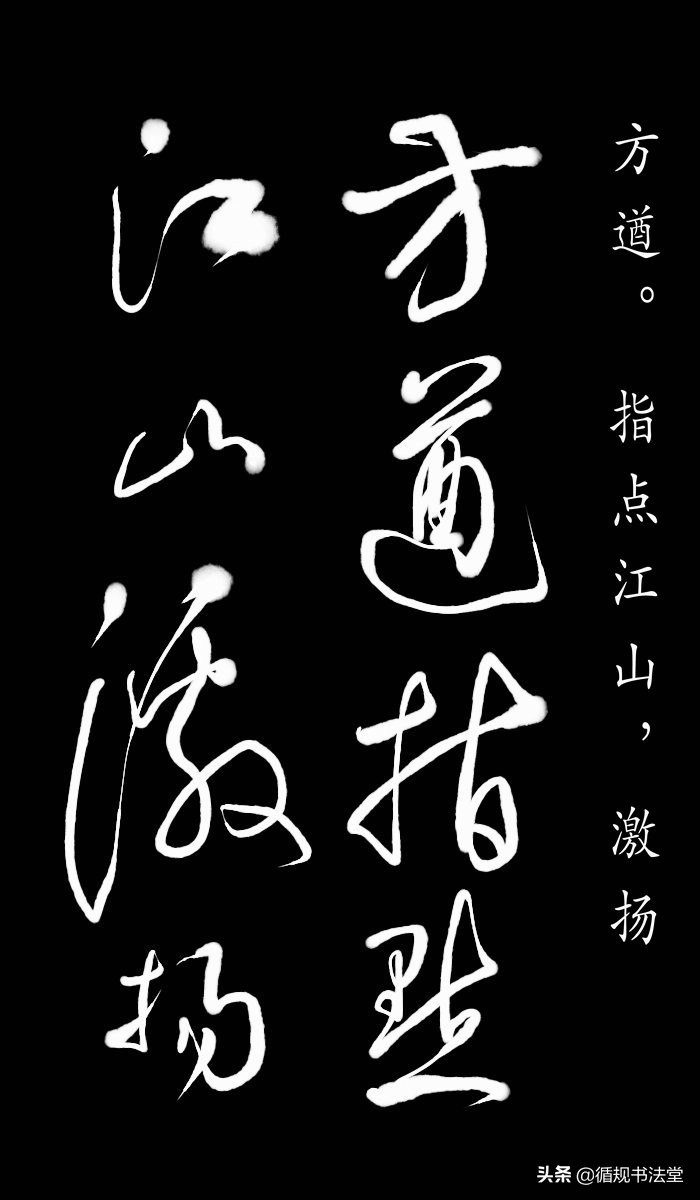 方遒。 指点江山，激扬
方遒指點
江山激扬
头条 @循规书法堂